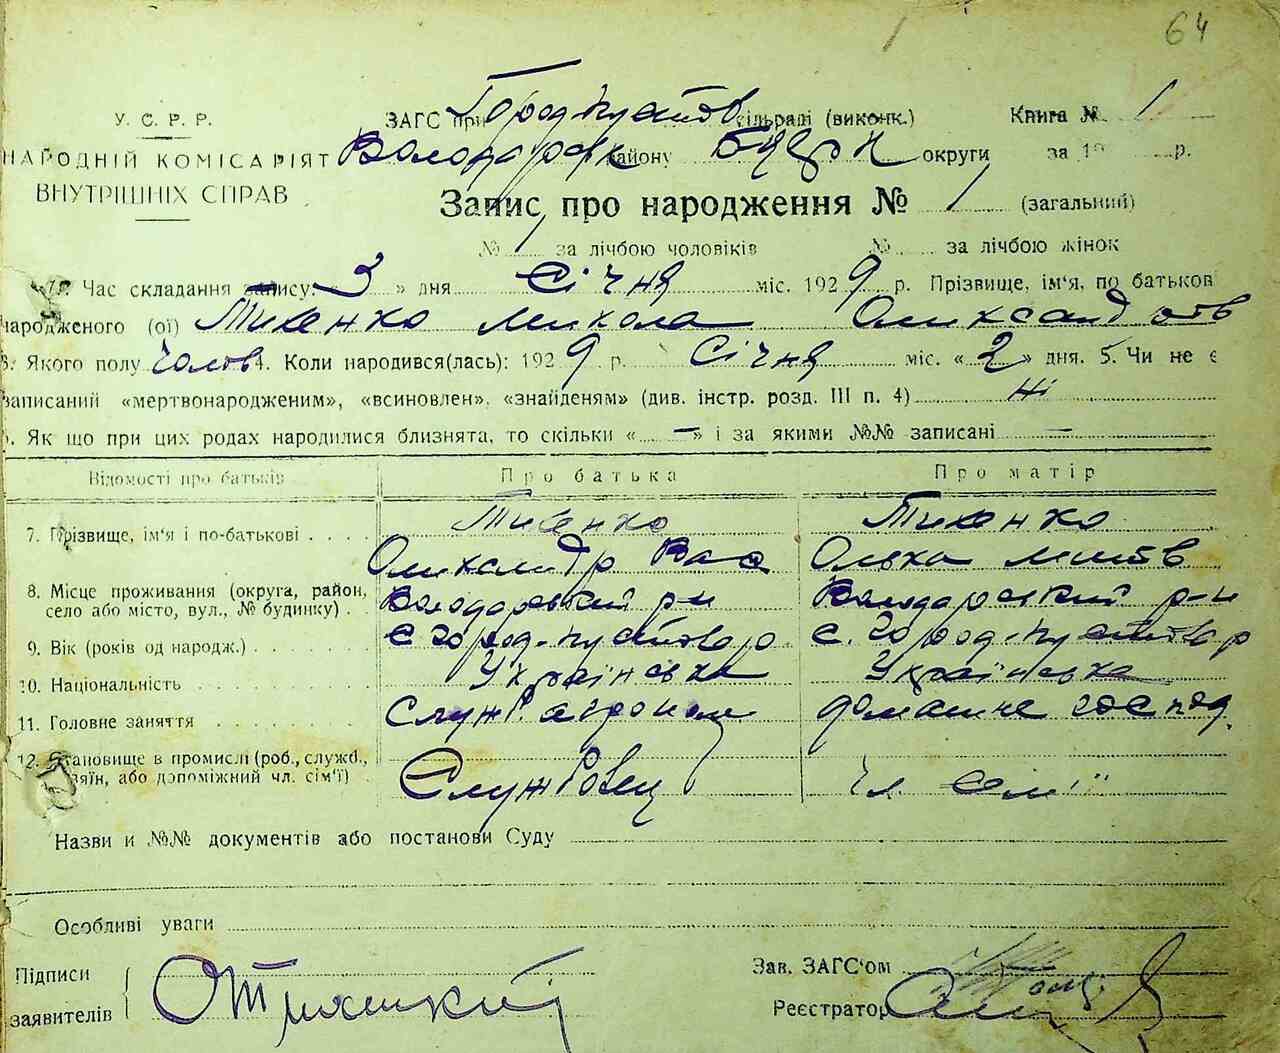 64
У. С. Р. Р.
НАРОДНІЙ КОМІСАРІЯТ
ВНУТРІШНІХ СПРАВ
ЗАГС при Городпустов сільраді (виконк.) Книга № 1
Володарськ району округи за 19 р.
Запис про народження № 1 (загальний)
№ 1 за лічбою чоловіків № за лічбою жінок
Час складання запису: « 3 » дня Січня міс. 1929 р. Прізвище, ім'я, по батькові
народженого (ої) Микола
3. Якого полу Чолов 4. Коли народився(лась): 1929 р. Січня міс. « 2 » дня. 5. Чи не є
записаний «мертвонародженим», «всиновлен», «знайденям» (див. інстр. розд. III п. 4) ні
Як що при цих родах народилися близнята, то скільки « — » і за якими №№ записані —
Відомості про батьків Про батька Про матір
7. Прізвище, ім'я і по-батькові
8. Місце проживання (округа, район, Володарський р-н Володарський р-н
село або місто, вул., № будинку)
9. Вік (років од народж.) с. Город-пустовар с. Город-пустовар
10. Національність Українська Українська
11. Головне заняття Служб. агроном домашнє господ.
12. Становище в промислі (роб., служб.,
хазяїн, або допоміжний чл. сім'ї) Службовец Чл. сем'ї
Назви и №№ документів або постанови Суду
Особливі уваги
Підписи
заявителів
Зав. ЗАГС'ом
Реєстратор